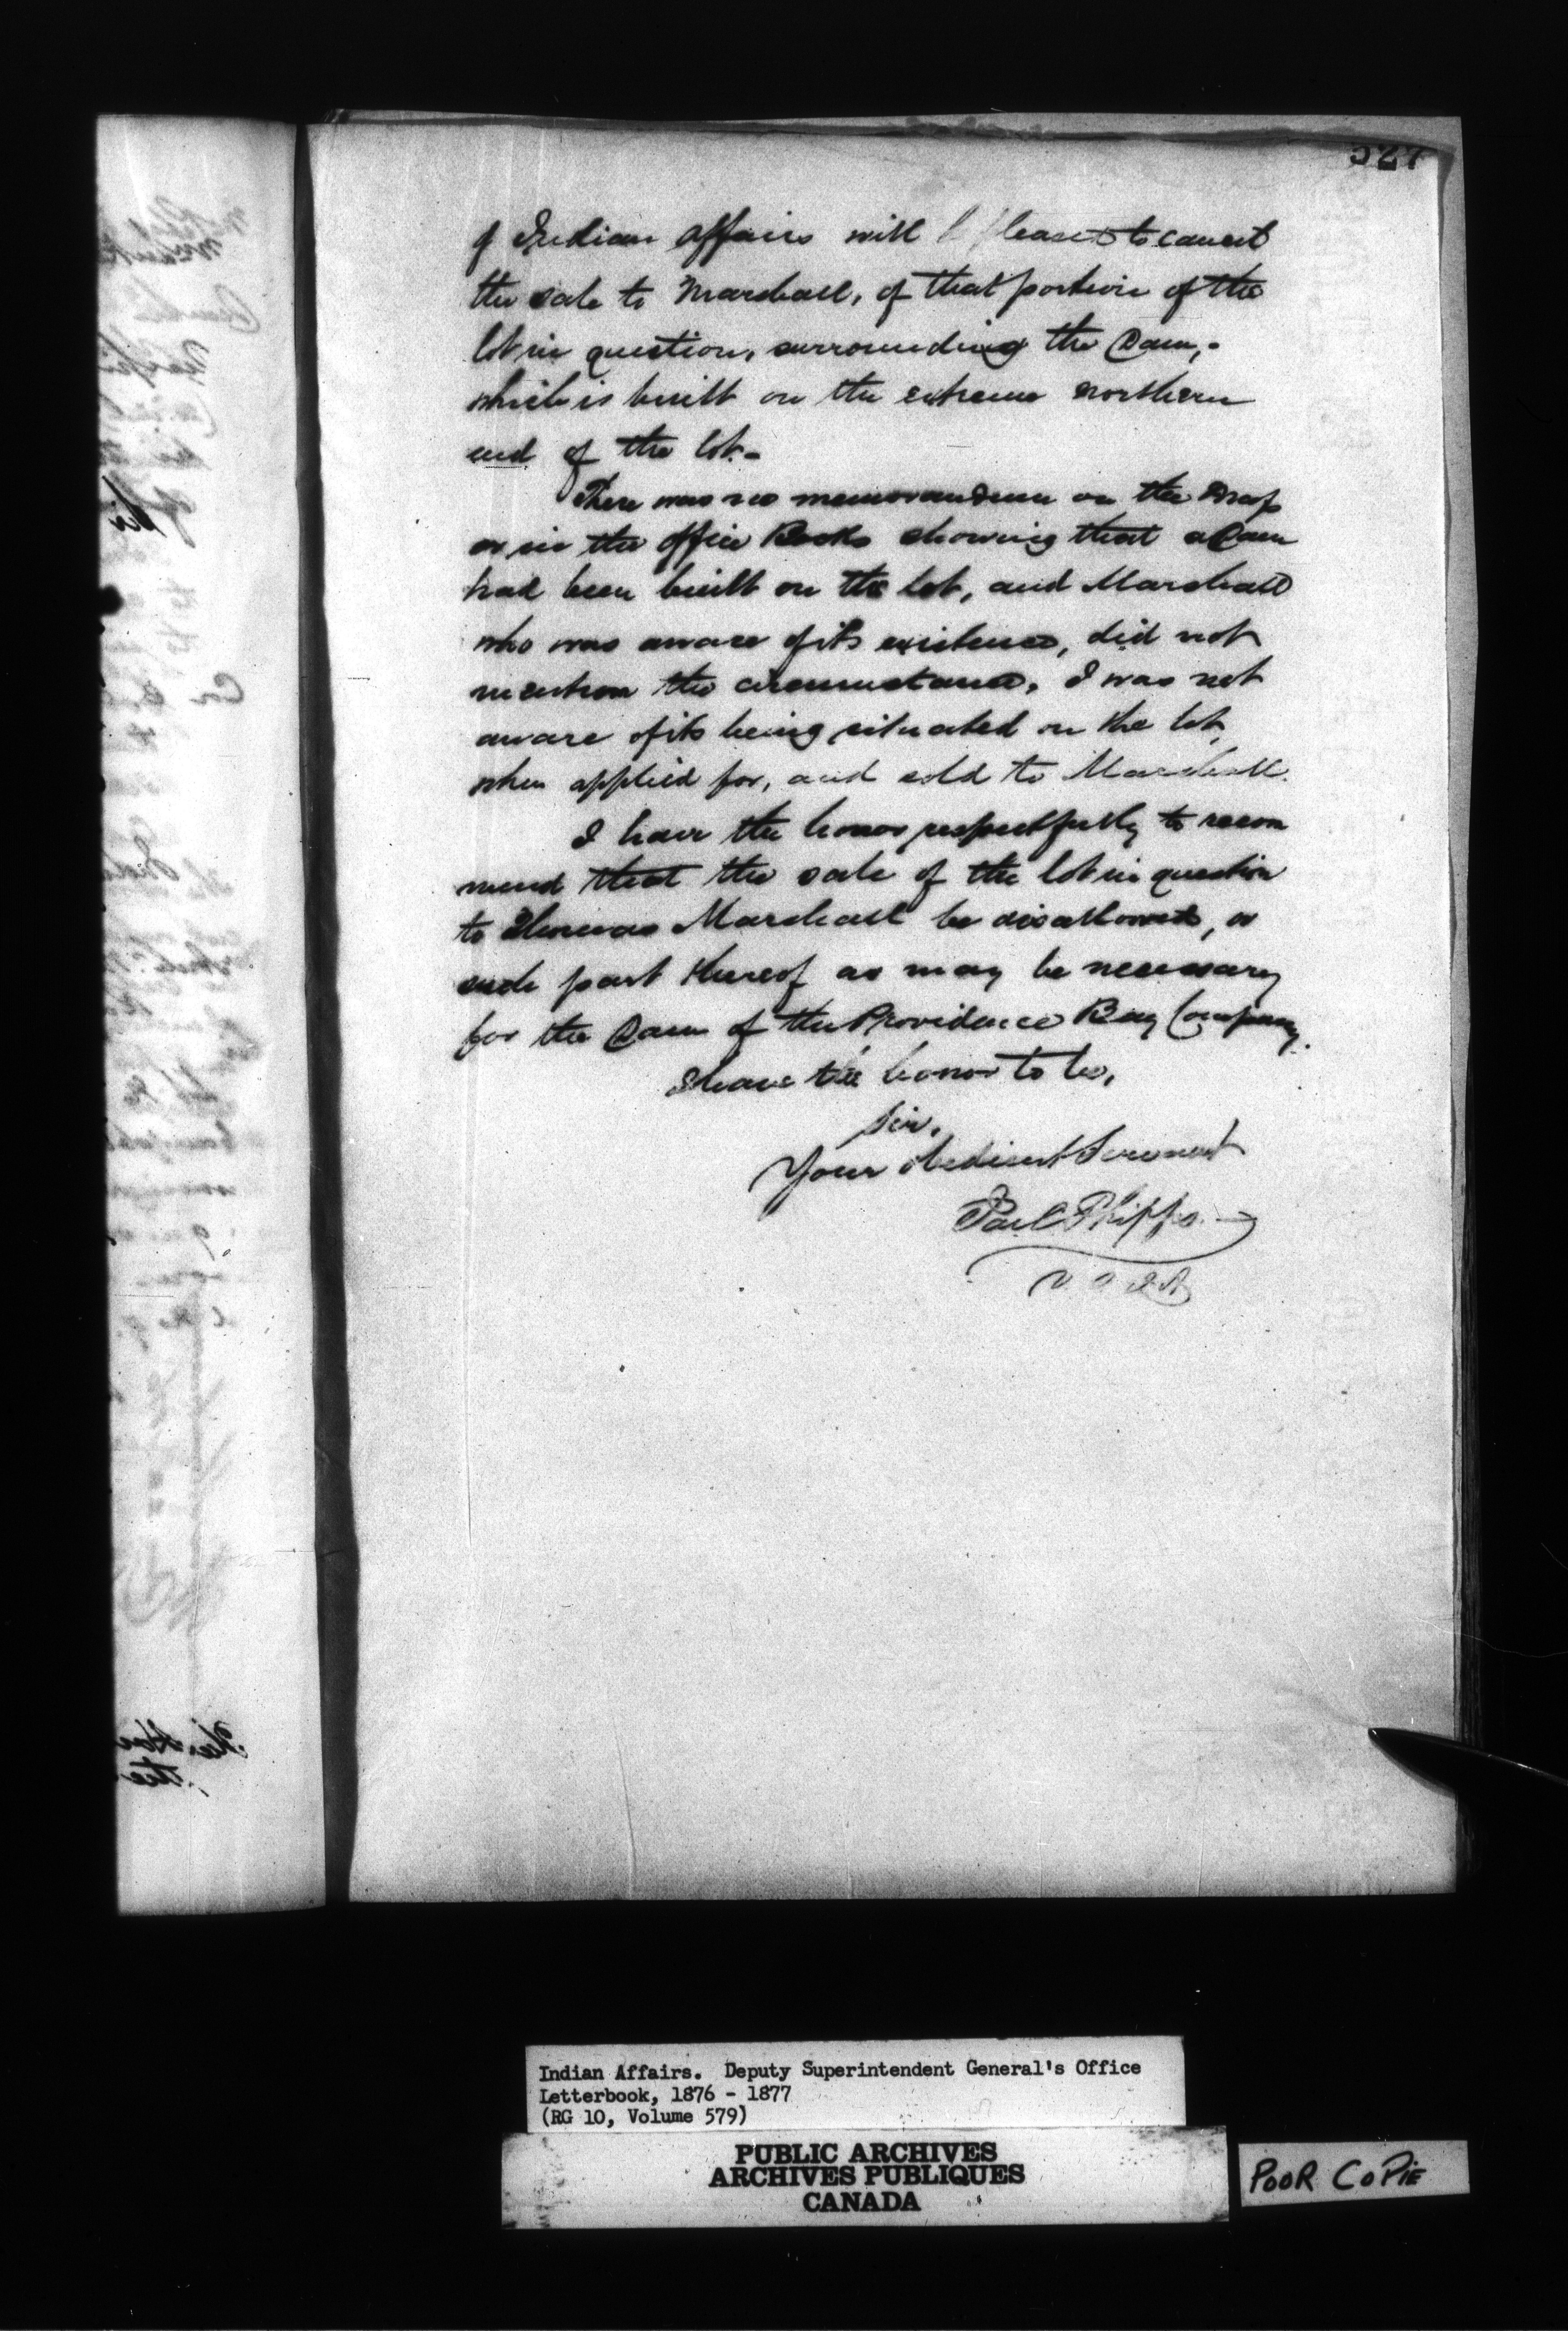 527
of Indian Affairs will be pleased to cancel
the sale to Marshall, of that portion of the
lot in question, surrounding the Dam,-
which is built on the extreme northern
end of the lot.-
There was no memorandum on the Map
or in the office Books showing that a Dam
had been built on the lot, and Marshall
who was aware of its existence, did not
mention the circumstance. I was not
aware of its being situated on the lot,
when applied for, and sold to Marshall.
I have the honor respectfully to recom
mend that the sale of the lot in question
to Thomas Marshall be disallowed, or
such part thereof as may be necessary
for the Dam of the Providence Bay Company.
I have the honor to be,
Sir,
Your obedient Servant
Phipps
Indian Affairs. Deputy Superintendent General's Office
Letterbook, 1876 - 1877
(RG 10, Volume 579)
PUBLIC ARCHIVES
ARCHIVES PUBLIQUES
CANADA
POOR COPIE